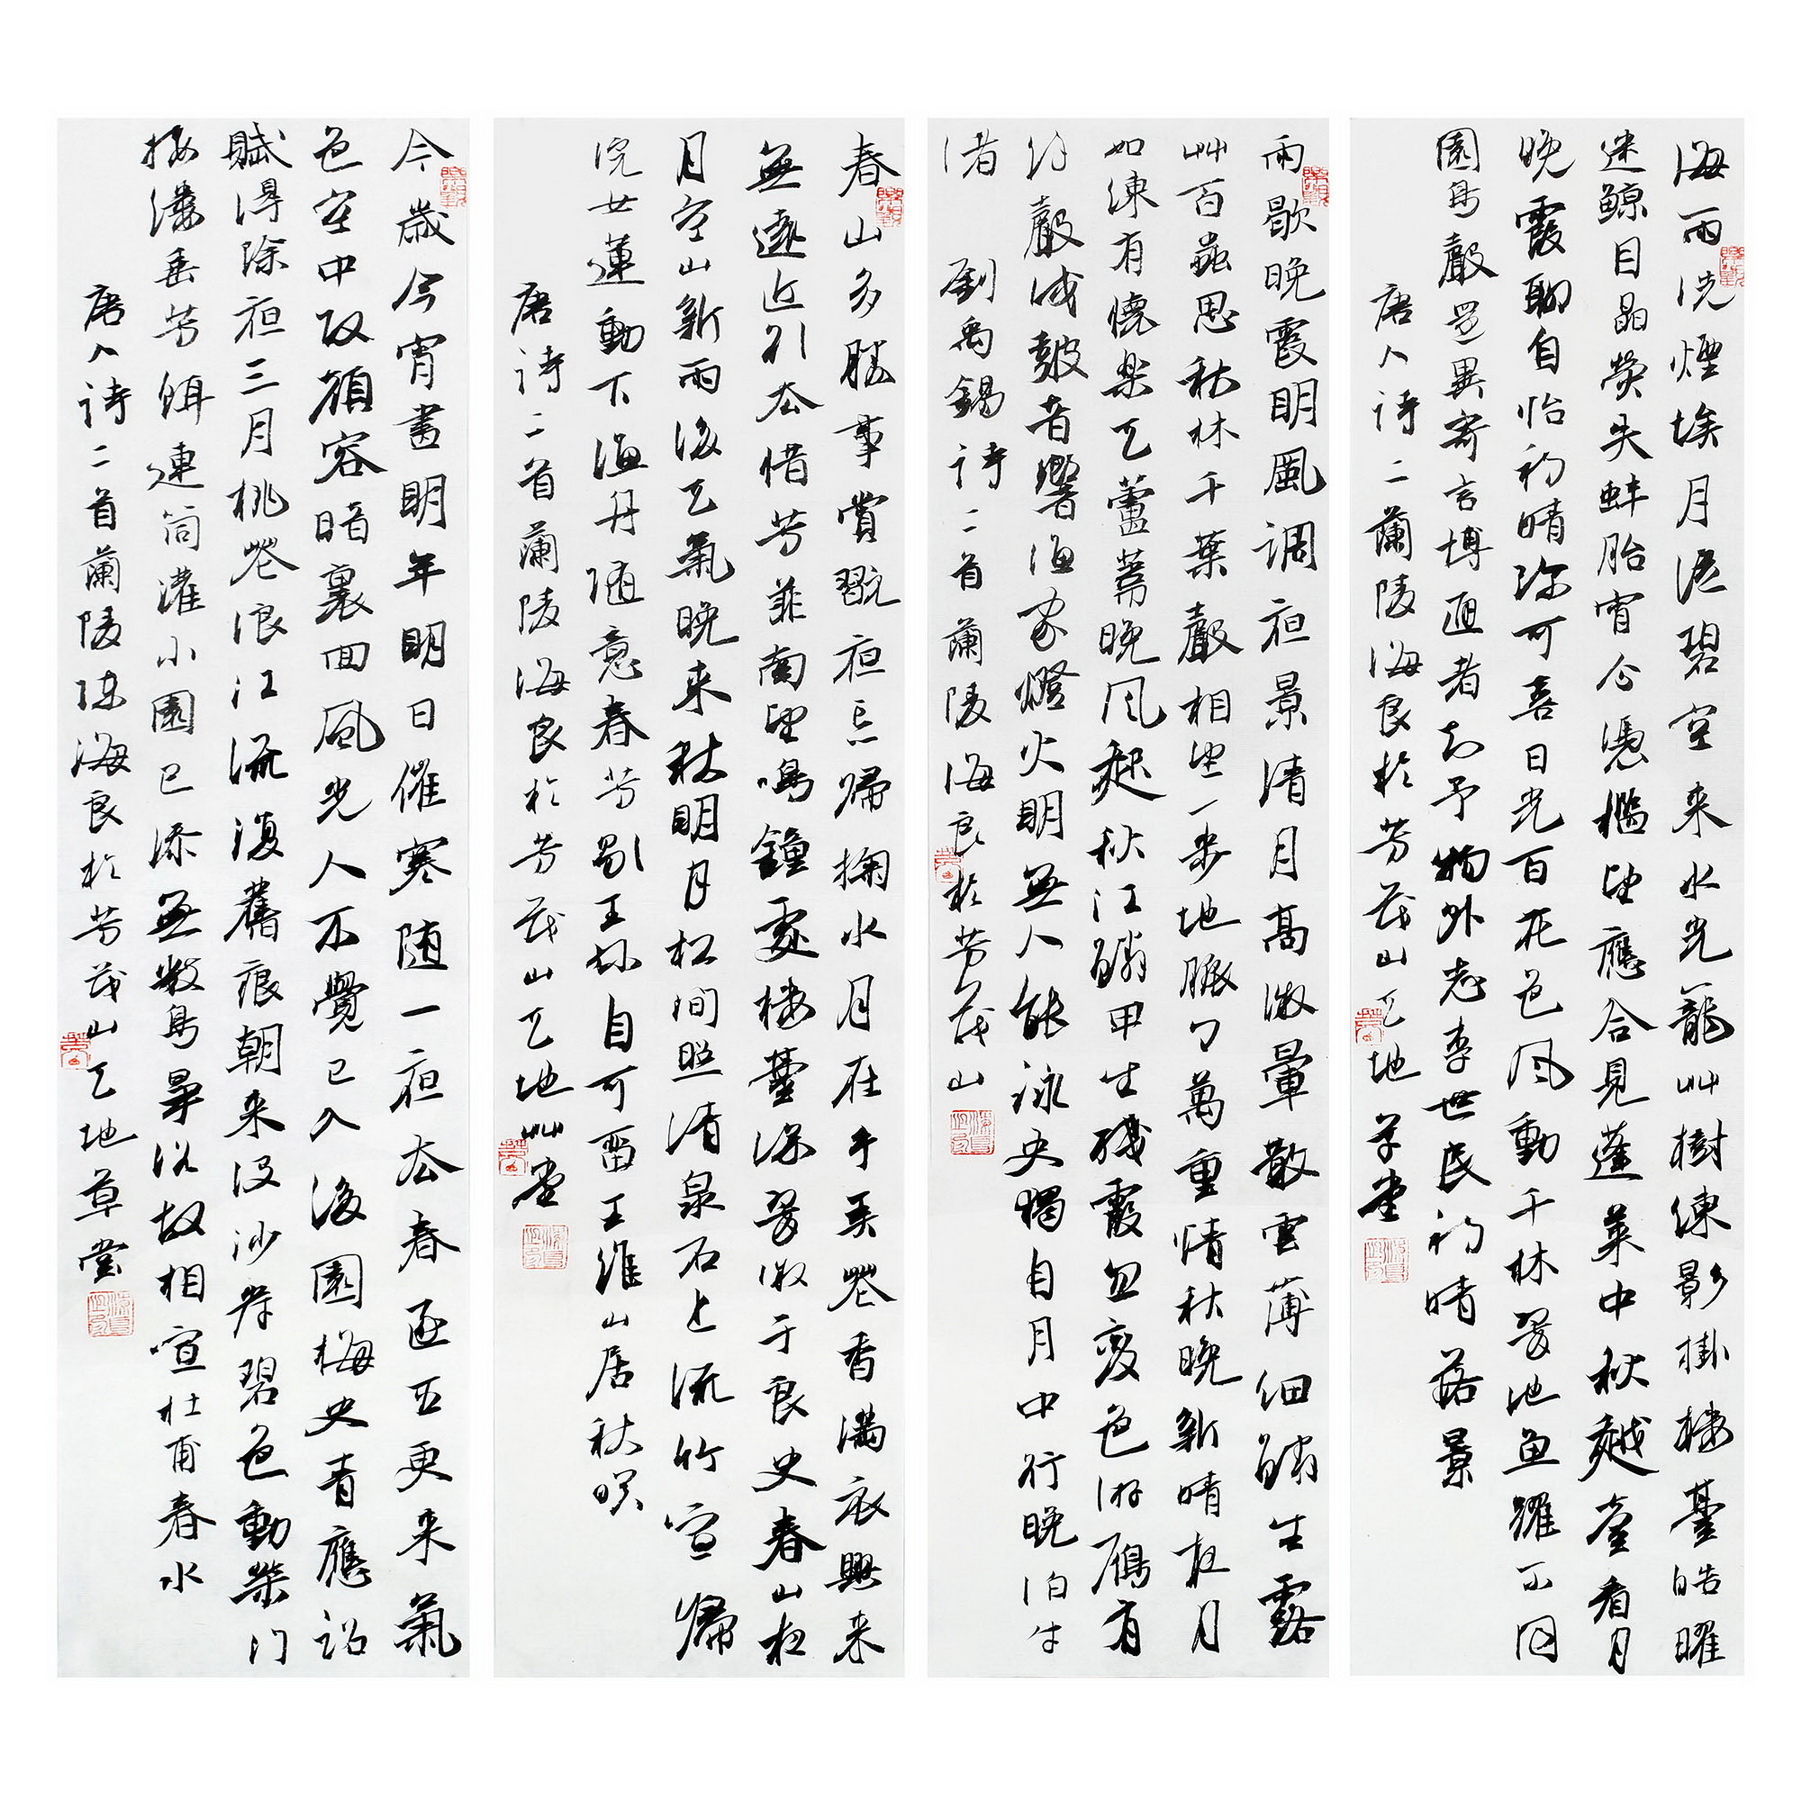 海雨洗煙埃月從碧空来水光籠艸樹練影掛樓臺皓曜
迷鯨目晶熒失蚌胎宵分憑檻望應合見蓬萊中秋越臺看月
晚霞聊自怡初晴弥可喜日光百花色風動千林翠池魚躍不同
園鳥聲還異寄言博通者知予物外志李世民初晴落景
唐人詩二首蘭陵海良於芳茂山天地草堂
雨歇晚霞明風調夜景清月高微暈散雲薄細鱗生露
艸百蟲思秋林千葉聲相望一步地脈々萬重情秋晚新晴夜月
如練有懷樂天蘆葦晚風起秋江鱗甲生殘霞忽變色游雁有
餘聲戍鼓音響漁家燈火明無人能詠史獨自月中行晚泊牛
渚 劉禹錫詩二首蘭陵海良於芳茂山
春山多勝事賞翫夜忘歸掬水月在手弄花香滿衣興来
無遠近引去惜芳菲南望鳴鐘處樓臺深翠微于良史春山夜
月空山新雨後天氣晚来秋明月松間照清泉石上流竹喧歸
浣女蓮動下漁舟随意春芳歇王孫自可留王維山居秋暝
唐詩二首蘭陵海良於芳茂山天地艸堂
今歲今宵盡明年明日催寒随一夜去春逐五更来氣
色空中改顏容暗裏回風光人不覺已入後園梅史青應詔
賦得除夜三月桃花浪江流復舊痕朝来没沙岸碧色動柴門
接縷垂芳餌連筒灌小園已添無數鳥爭浴故相喧杜甫春水
唐人詩二首蘭陵陳海良於芳茂山天地草堂